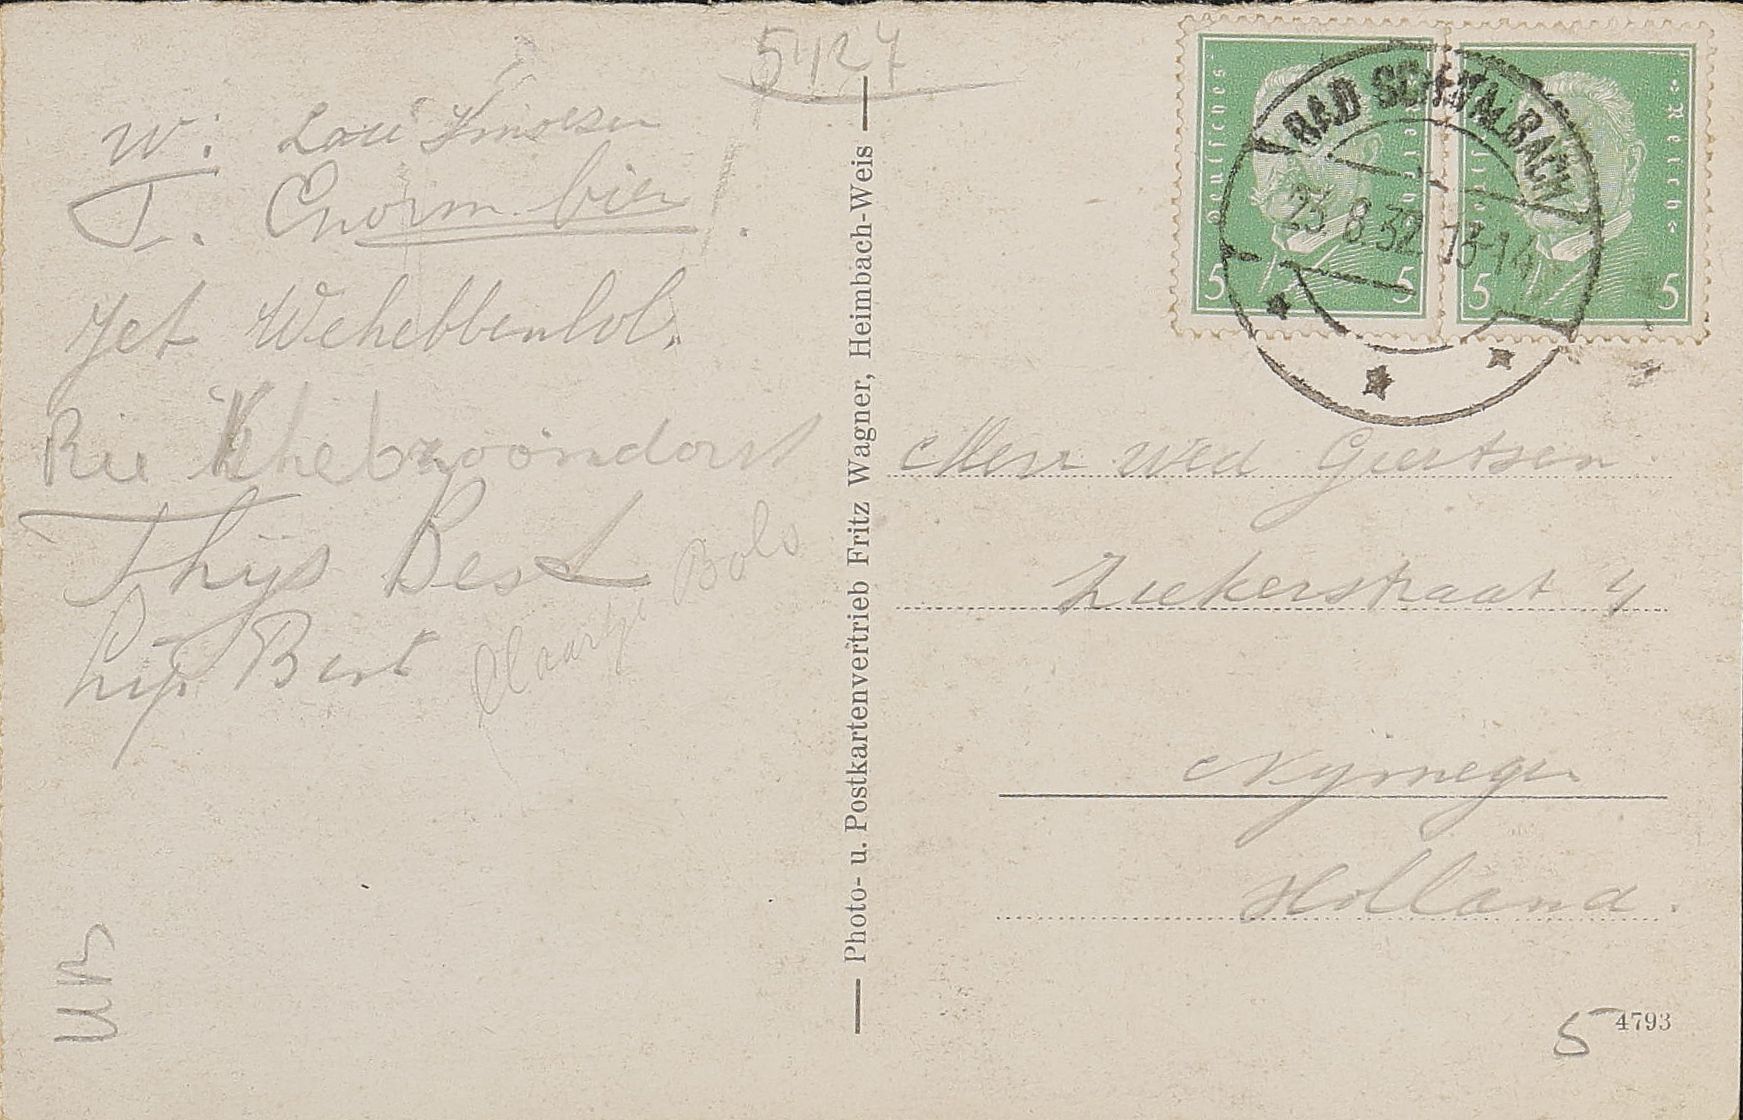 5427
W: Lou
T. Enorm bier.
Jet Wehebbenlol.
Rie Whebzoondorst
Thijs Best
Bert
Claartje Bols
Photo- u. Postkartenvertrieb Fritz Wagner, Heimbach-Weis
Deutsches Reich
5 5
Deutsches Reich
5 5
BAD SCHWALBACH
23.8.32 13-14
Mevr Wed Geertsen.
Ziekerstraat 4
Nymegen
Holland.
5
4793